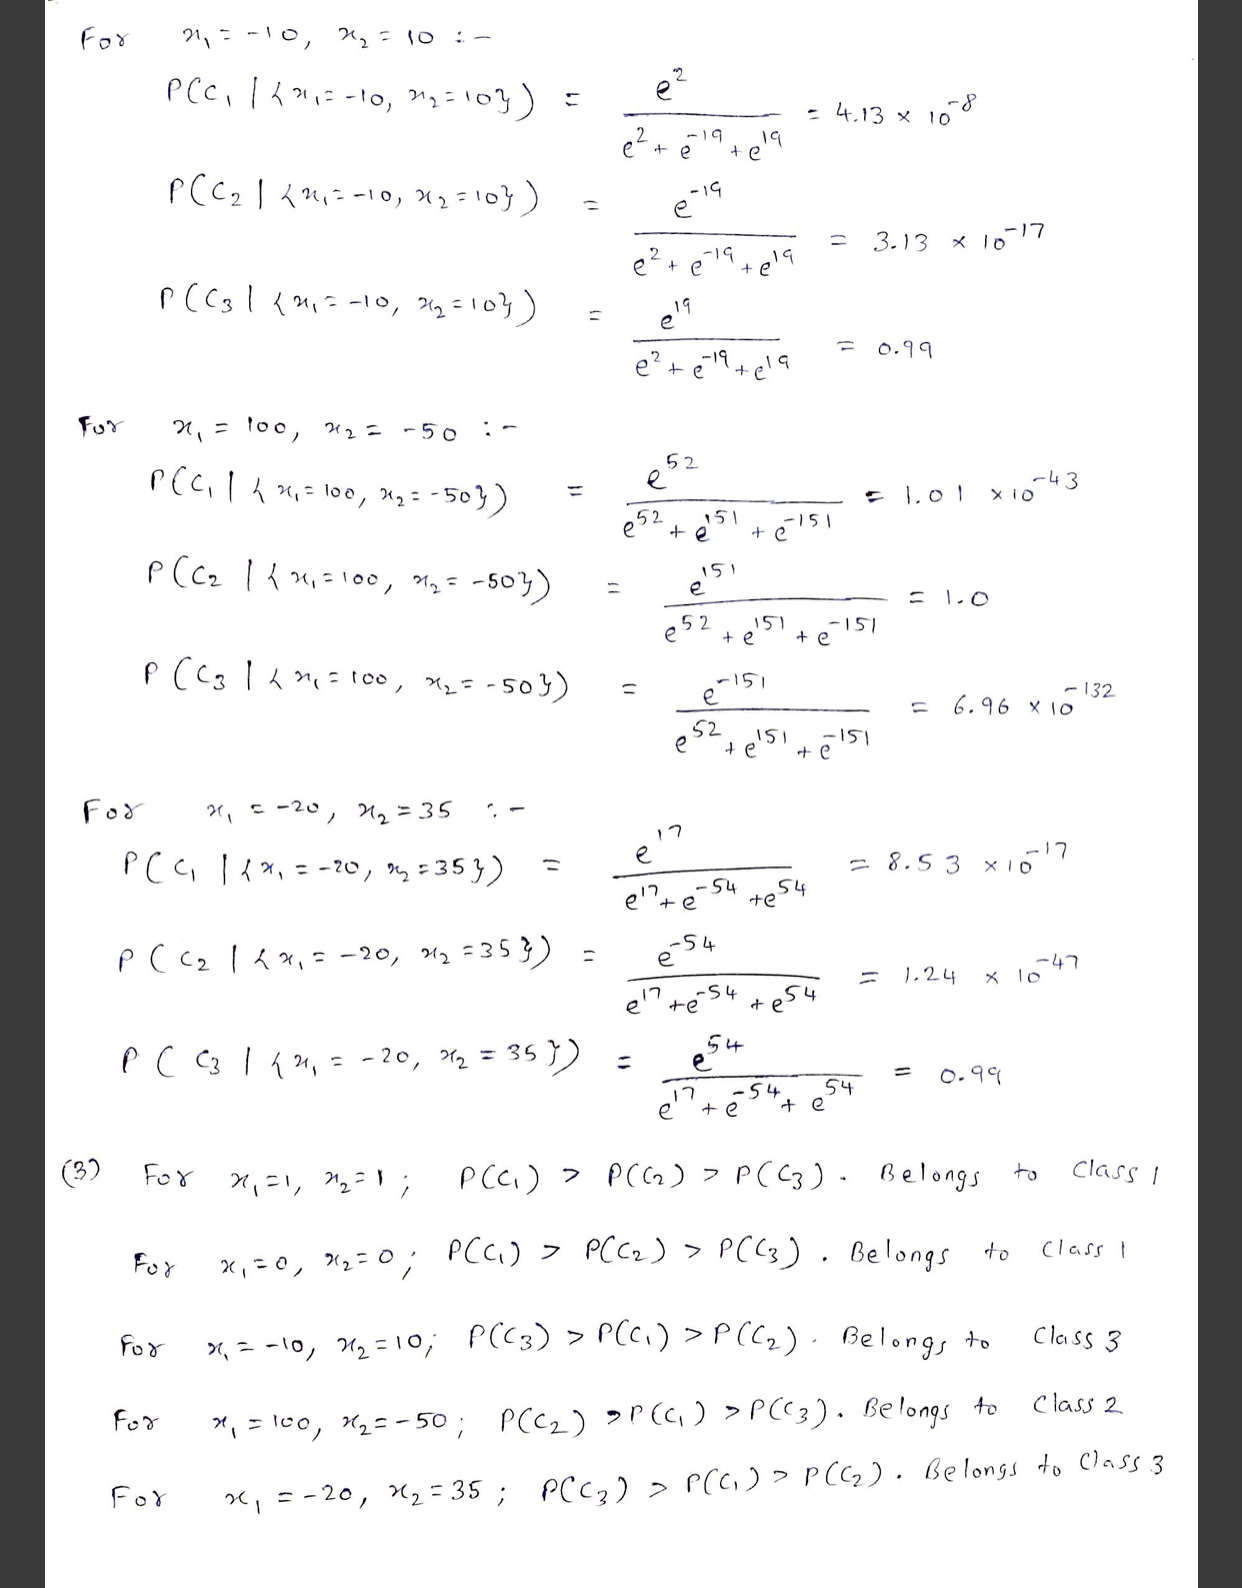 For x₁ = -10, x₂ = 10 :-
P(C₁ | {x₁ = -10, x₂ = 10}) = e² / (e² + e⁻¹⁹ + e¹⁹) = 4.13 × 10⁻⁸
P(C₂ | {x₁ = -10, x₂ = 10}) = e⁻¹⁹ / (e² + e⁻¹⁹ + e¹⁹) = 3.13 × 10⁻¹⁷
P(C₃ | {x₁ = -10, x₂ = 10}) = e¹⁹ / (e² + e⁻¹⁹ + e¹⁹) = 0.99
For x₁ = 100, x₂ = -50 :-
P(C₁ | {x₁ = 100, x₂ = -50}) = e⁵² / (e⁵² + e¹⁵¹ + e⁻¹⁵¹) = 1.01 × 10⁻⁴³
P(C₂ | {x₁ = 100, x₂ = -50}) = e¹⁵¹ / (e⁵² + e¹⁵¹ + e⁻¹⁵¹) = 1.0
P(C₃ | {x₁ = 100, x₂ = -50}) = e⁻¹⁵¹ / (e⁵² + e¹⁵¹ + e⁻¹⁵¹) = 6.96 × 10⁻¹³²
For x₁ = -20, x₂ = 35 :-
P(C₁ | {x₁ = -20, x₂ = 35}) = e¹⁷ / (e¹⁷ + e⁻⁵⁴ + e⁵⁴) = 8.53 × 10⁻¹⁷
P(C₂ | {x₁ = -20, x₂ = 35}) = e⁻⁵⁴ / (e¹⁷ + e⁻⁵⁴ + e⁵⁴) = 1.24 × 10⁻⁴⁷
P(C₃ | {x₁ = -20, x₂ = 35}) = e⁵⁴ / (e¹⁷ + e⁻⁵⁴ + e⁵⁴) = 0.99
(3) For x₁=1, x₂=1; P(C₁) > P(C₂) > P(C₃). Belongs to Class 1
For x₁=0, x₂=0; P(C₁) > P(C₂) > P(C₃). Belongs to Class 1
For x₁ = -10, x₂=10; P(C₃) > P(C₁) > P(C₂). Belongs to Class 3
For x₁ = 100, x₂=-50; P(C₂) > P(C₁) > P(C₃). Belongs to Class 2
For x₁ = -20, x₂ = 35; P(C₃) > P(C₁) > P(C₂). Belongs to Class 3